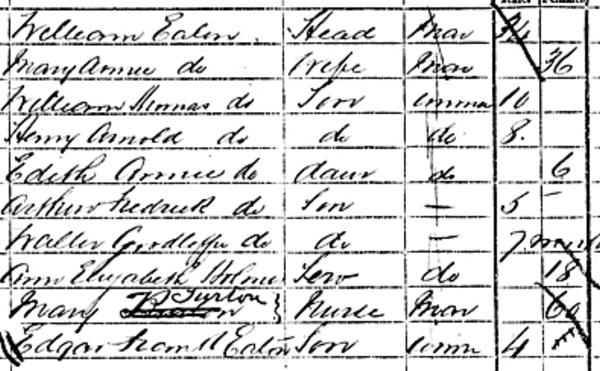 William Eaton. Head Mar 34
Mary Annie do Wife Mar 36
William Thomas do Son unmar 10
Henry Arnold do do do 8.
Edith Annie do daur do 6
Arthur Fredrick do Son — 5
Walter do do — 7 month
Ann Elizabeth Holmes Serv do 18
Mary Turton } Nurse Mar 60
Edgar Eaton Son 4